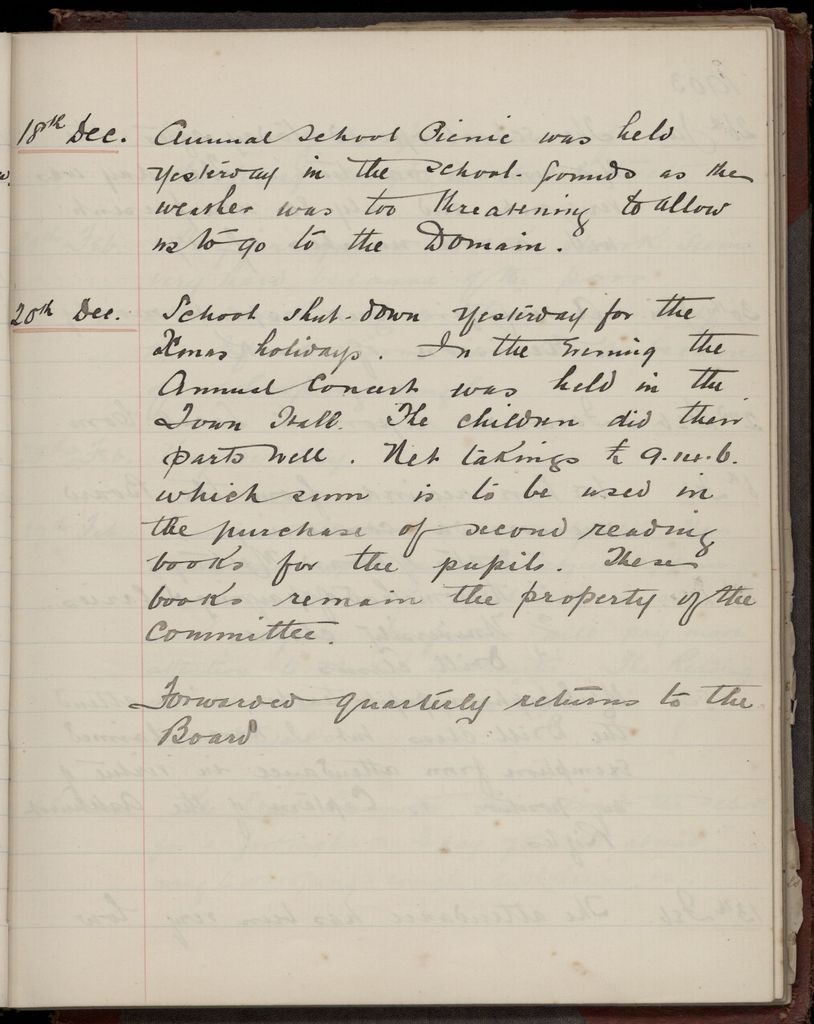 18th Dec. Annual School Picnic was held
yesterday in the School-grounds as the
weather was too threatening to allow
us to go to the Domain.
20th Dec. School shut-down yesterday for the
Xmas holidays. In the Evening the
Annual Concert was held in the
Town Hall. The children did their
parts well. Net takings £9.14.6.
which sum is to be used in
the purchase of second reading
books for the pupils. These
books remain the property of the
Committee.
Forwarded quarterly returns to the
Board